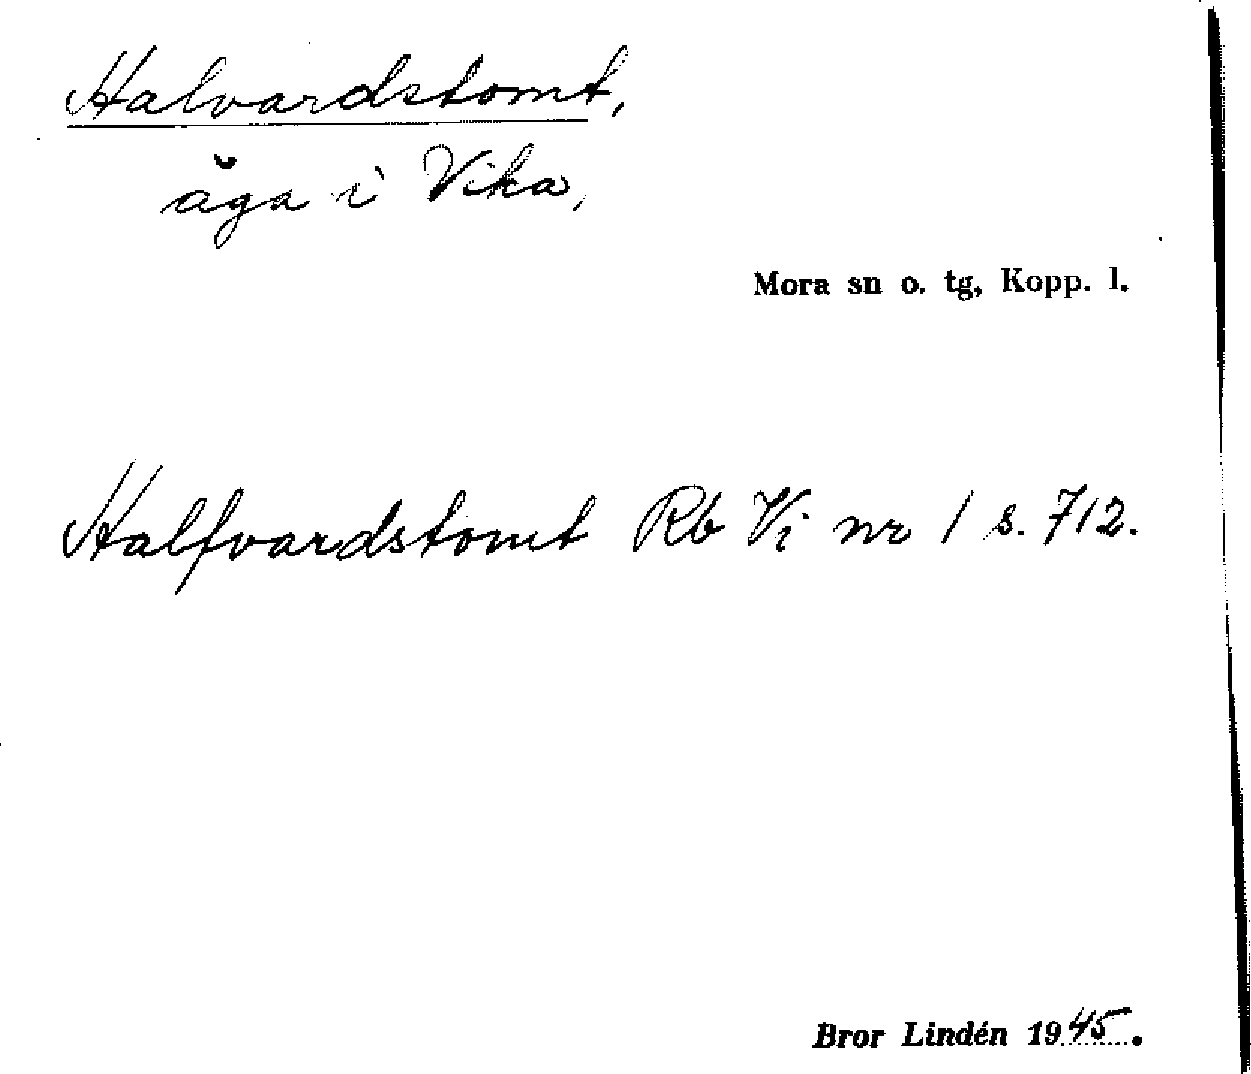 Halvardstomt,
äga i Vika,
Mora sn o. tg, Kopp. l.
Halfvardstomt Rb Vi nr 1 s. 712.
Bror Lindén 1945.